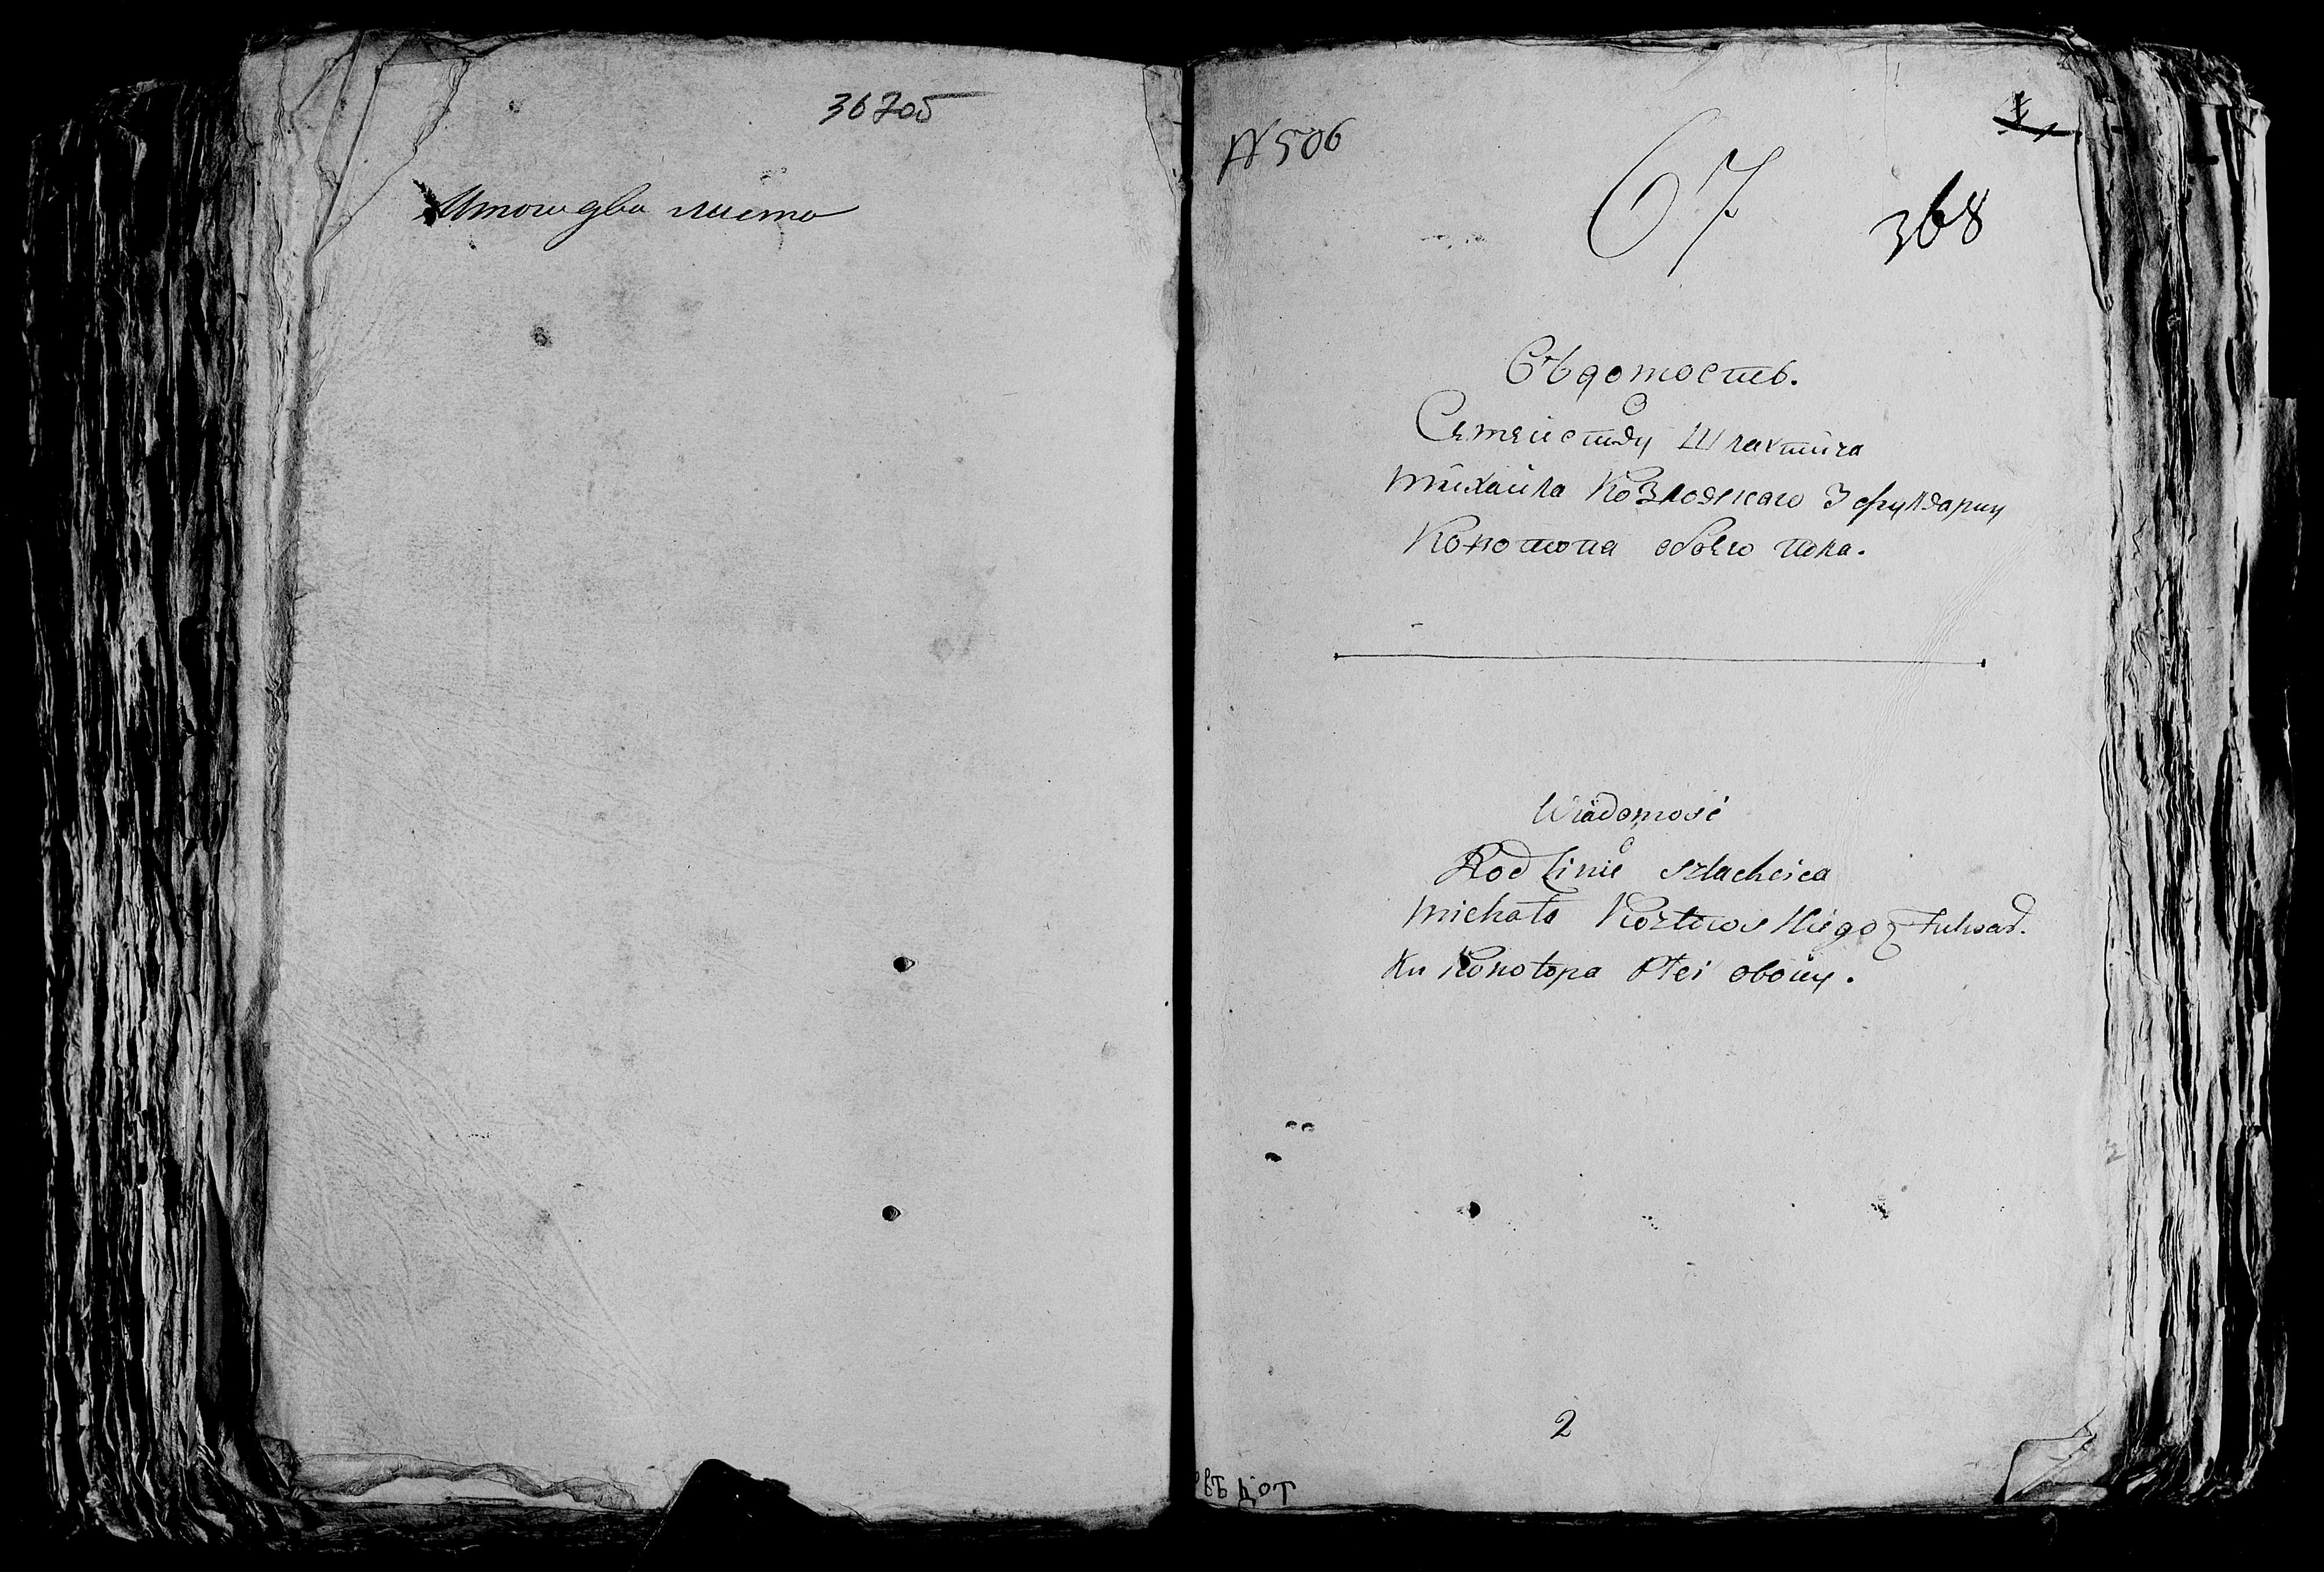 367об
Итого два листа
№ 506
67
368
1
Вѣдомость.
О
Семейству Шляхтича
Михаила Козловскаго З фулварку
Конотопа обоего пола.
Wiadomość
o
Rodzinie szlachcica
Michała Kozłowskiego z Fulwar.
ku Konotopa płci oboiey.
2
вѣдом